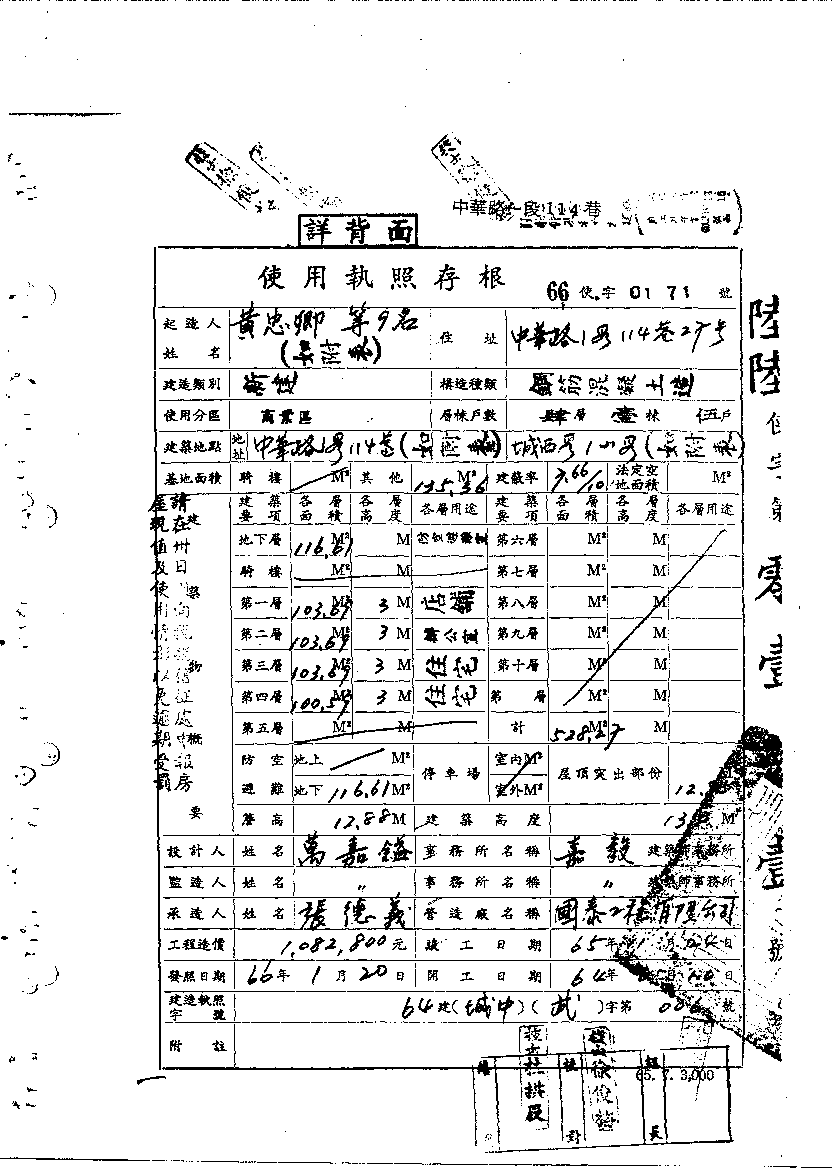 中華路一段114巷
詳背面
使用執照存根
66使字0171號
起造人姓名 黃忠卿 等9名 (如附表) 住址 中華路1段114巷27号
建造類別 構造種類 鋼筋混凝土造
使用分區 商業區 層棟戶數 肆層 壹棟 伍戶
建築地點 地址 中華路1段114巷(如附表) 城西段1小段(如附表)
基地面積 騎樓 M² 其他 135.36 M² 建蔽率 7.66/10 法定空地面積 M²
建築要項 各層面積 各層高度 各層用途 建築要項 各層面積 各層高度 各層用途
地下層 116.61 M² M 第六層 M² M
騎樓 M² M 第七層 M² M
第一層 103.69 M² 3 M 店舖 第八層 M² M
第二層 103.69 M² 3 M 辦公室 第九層 M² M
第三層 103.69 M² 3 M 住宅 第十層 M² M
第四層 100.59 M² 3 M 住宅 第 層 M² M
第五層 M² M 計 528.27 M² M
防空避難 地上 M² 停車場 室內M² 屋頂突出部份
地下 116.61 M² 室外M² 12.
簷高 12.88 M 建築高度 M
設計人 姓名 萬嘉鎰 事務所名稱 嘉毅 建築師事務所
監造人 姓名 〃 事務所名稱 〃 建築師事務所
承造人 姓名 張德義 營造廠名稱 國泰工程有限公司
工程造價 1,082,800元 竣工日期 65年 月 日
發照日期 66年1月20日 開工日期 64年 月 日
建造執照字號 64建(城中)(武)字第 號
附註
建築物概要
請在卅日內向稅捐稽征處申報房屋現值及使用情形以免逾期受罰
陸陸使字第零壹 壹號
65. 7. 3,000
校對
組長